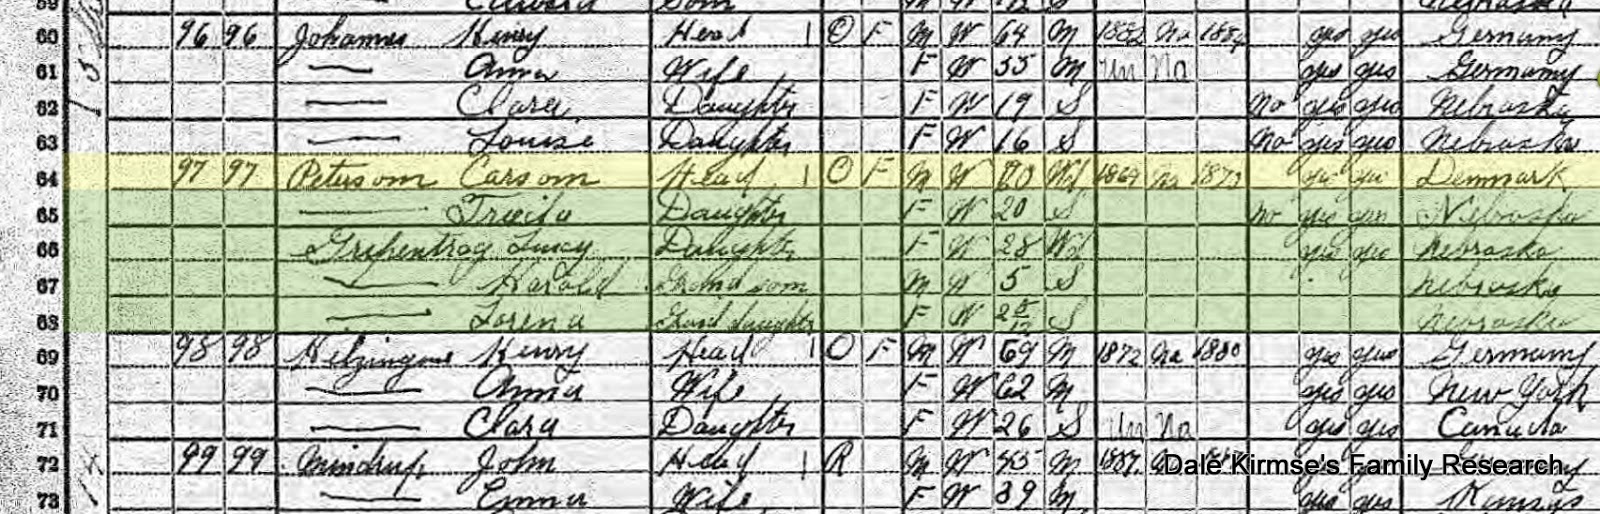 59 Edward Son M W 12 S Nebraska
60 96 96 Johannes Henry Head 1 O F M W 64 M 1882 Na yes yes Germany
61 — Anna Wife F W 55 M Un Na yes yes Germany
62 — Clara Daughter F W 19 S no yes yes Nebraska
63 — Louise Daughter F W 16 S no yes yes Nebraska
64 97 97 Peterson Carson Head 1 O F M W 70 Wd 1869 Na yes yes Denmark
65 — Daughter F W 20 S no yes yes Nebraska
66 Gripentrog Lucy Daughter F W 28 Wd yes yes Nebraska
67 — Harold Grand son M W 5 S Nebraska
68 — Lorena Grand daughter F W 2 S Nebraska
69 98 98 Henry Head 1 O F M W 69 M 1872 Na 1880 yes yes Germany
70 — Anna Wife F W 62 M yes yes New York
71 — Clara Daughter F W 26 S Un Na yes yes Canada
72 99 99 Mindrup John Head 1 R M W 45 M 1887 Dale Kirmse's Family Research
73 — Emma Wife F W 39 M yes yes Kansas